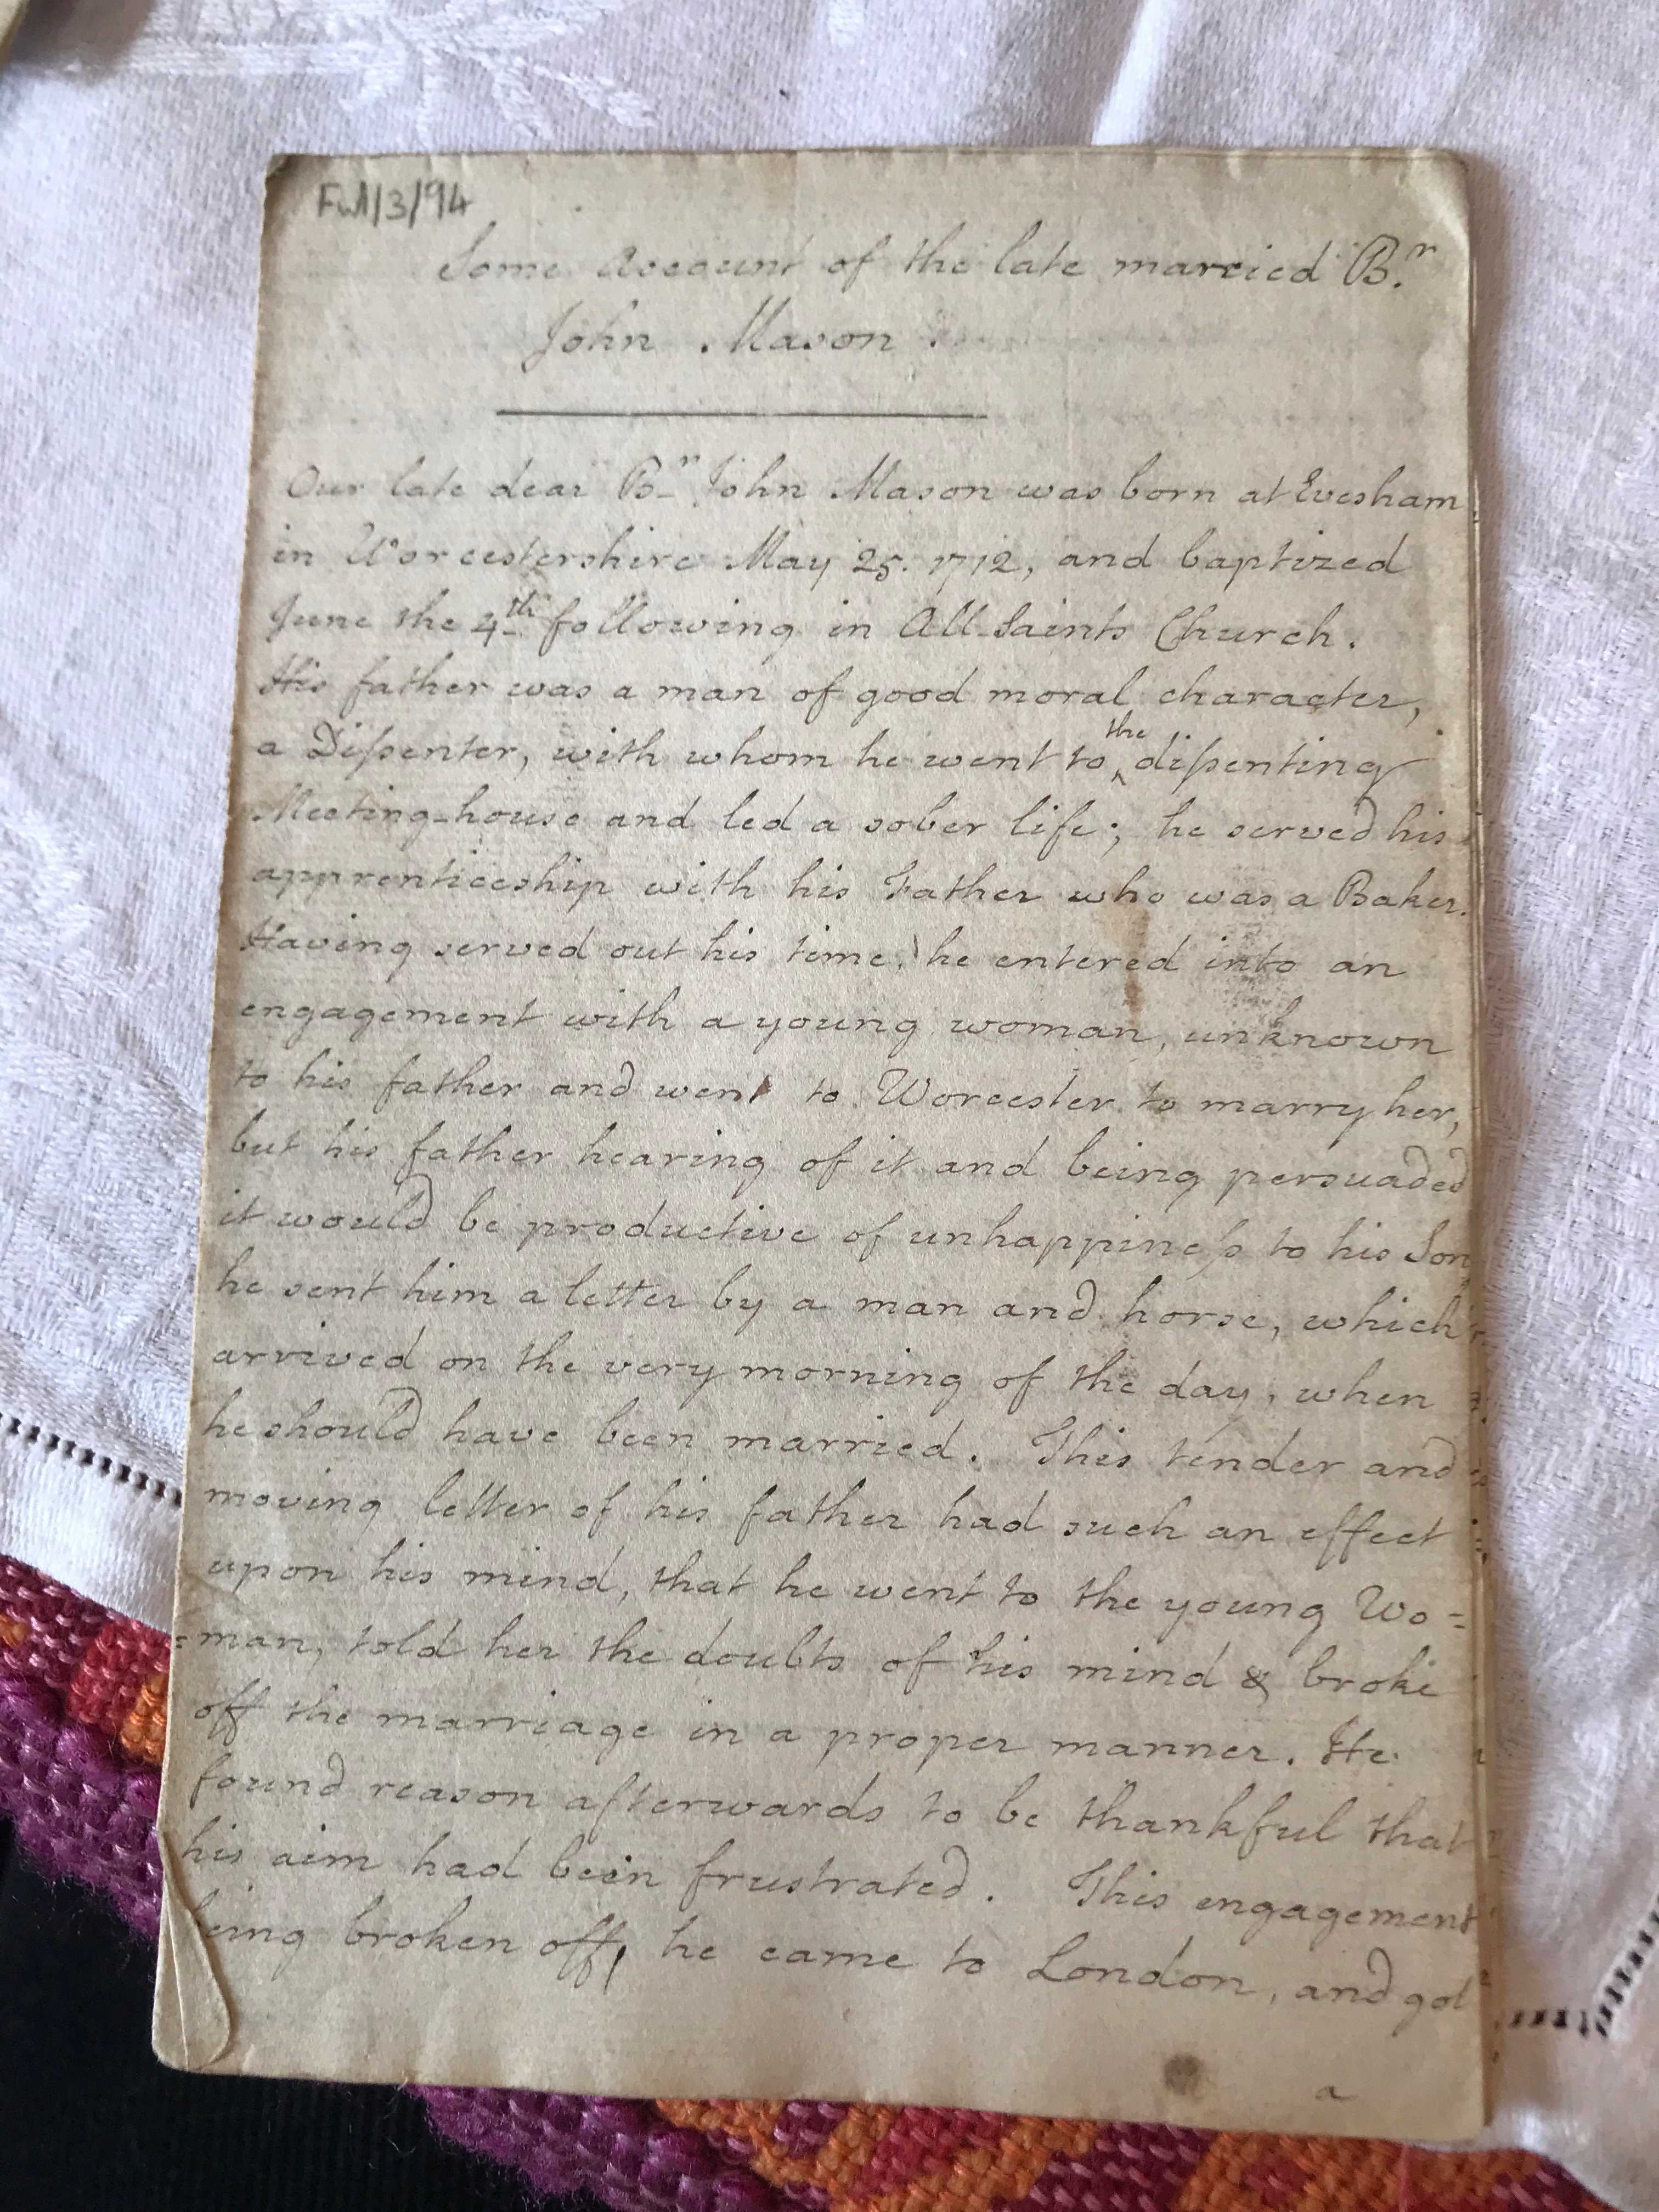 Ful/3/94
Some Account of the late married Br.
John Mason
Our late dear Br. John Mason was born at Evesham
in Worcestershire May 25. 1712, and baptized
June the 4th following in All-Saints Church.
His father was a man of good moral character,
a Dissenter, with whom he went to the dissenting
Meeting-house and led a sober life; he served his
apprenticeship with his Father who was a Baker.
Having served out his time, he entered into an
engagement with a young woman, unknown
to his father and went to Worcester to marry her,
but his father hearing of it and being persuaded
it would be productive of unhappiness to his Son
he sent him a letter by a man and horse, which
arrived on the very morning of the day, when
he should have been married. This tender and
moving letter of his father had such an effect
upon his mind, that he went to the young Wo=
=man, told her the doubts of his mind & broke
off the marriage in a proper manner. He
found reason afterwards to be thankful that
his aim had been frustrated. This engagement
being broken off, he came to London, and got
a